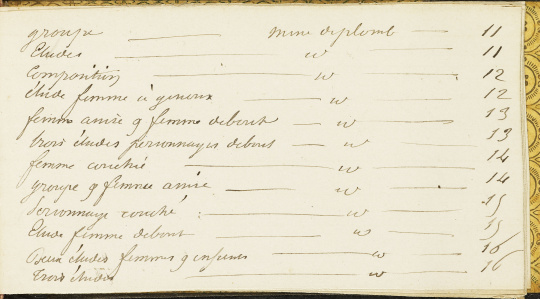 groupe — mine de plomb — 11
Etudes — w — 11
Composition — w — 12
étude femme à genoux — w — 12
femme assise & femme debout — w — 13
trois études personnages debout — w — 13
femme couchée — w — 14
groupe & femme assise — w — 14
Personnage couché : — w — 15
Etude femme debout — w — 15
Deux études femmes & enfants — w — 16
Trois études — w — 16